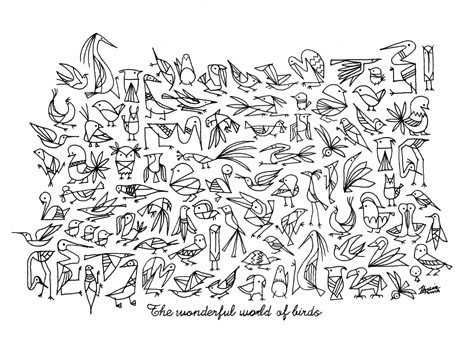 The wonderful world of birds